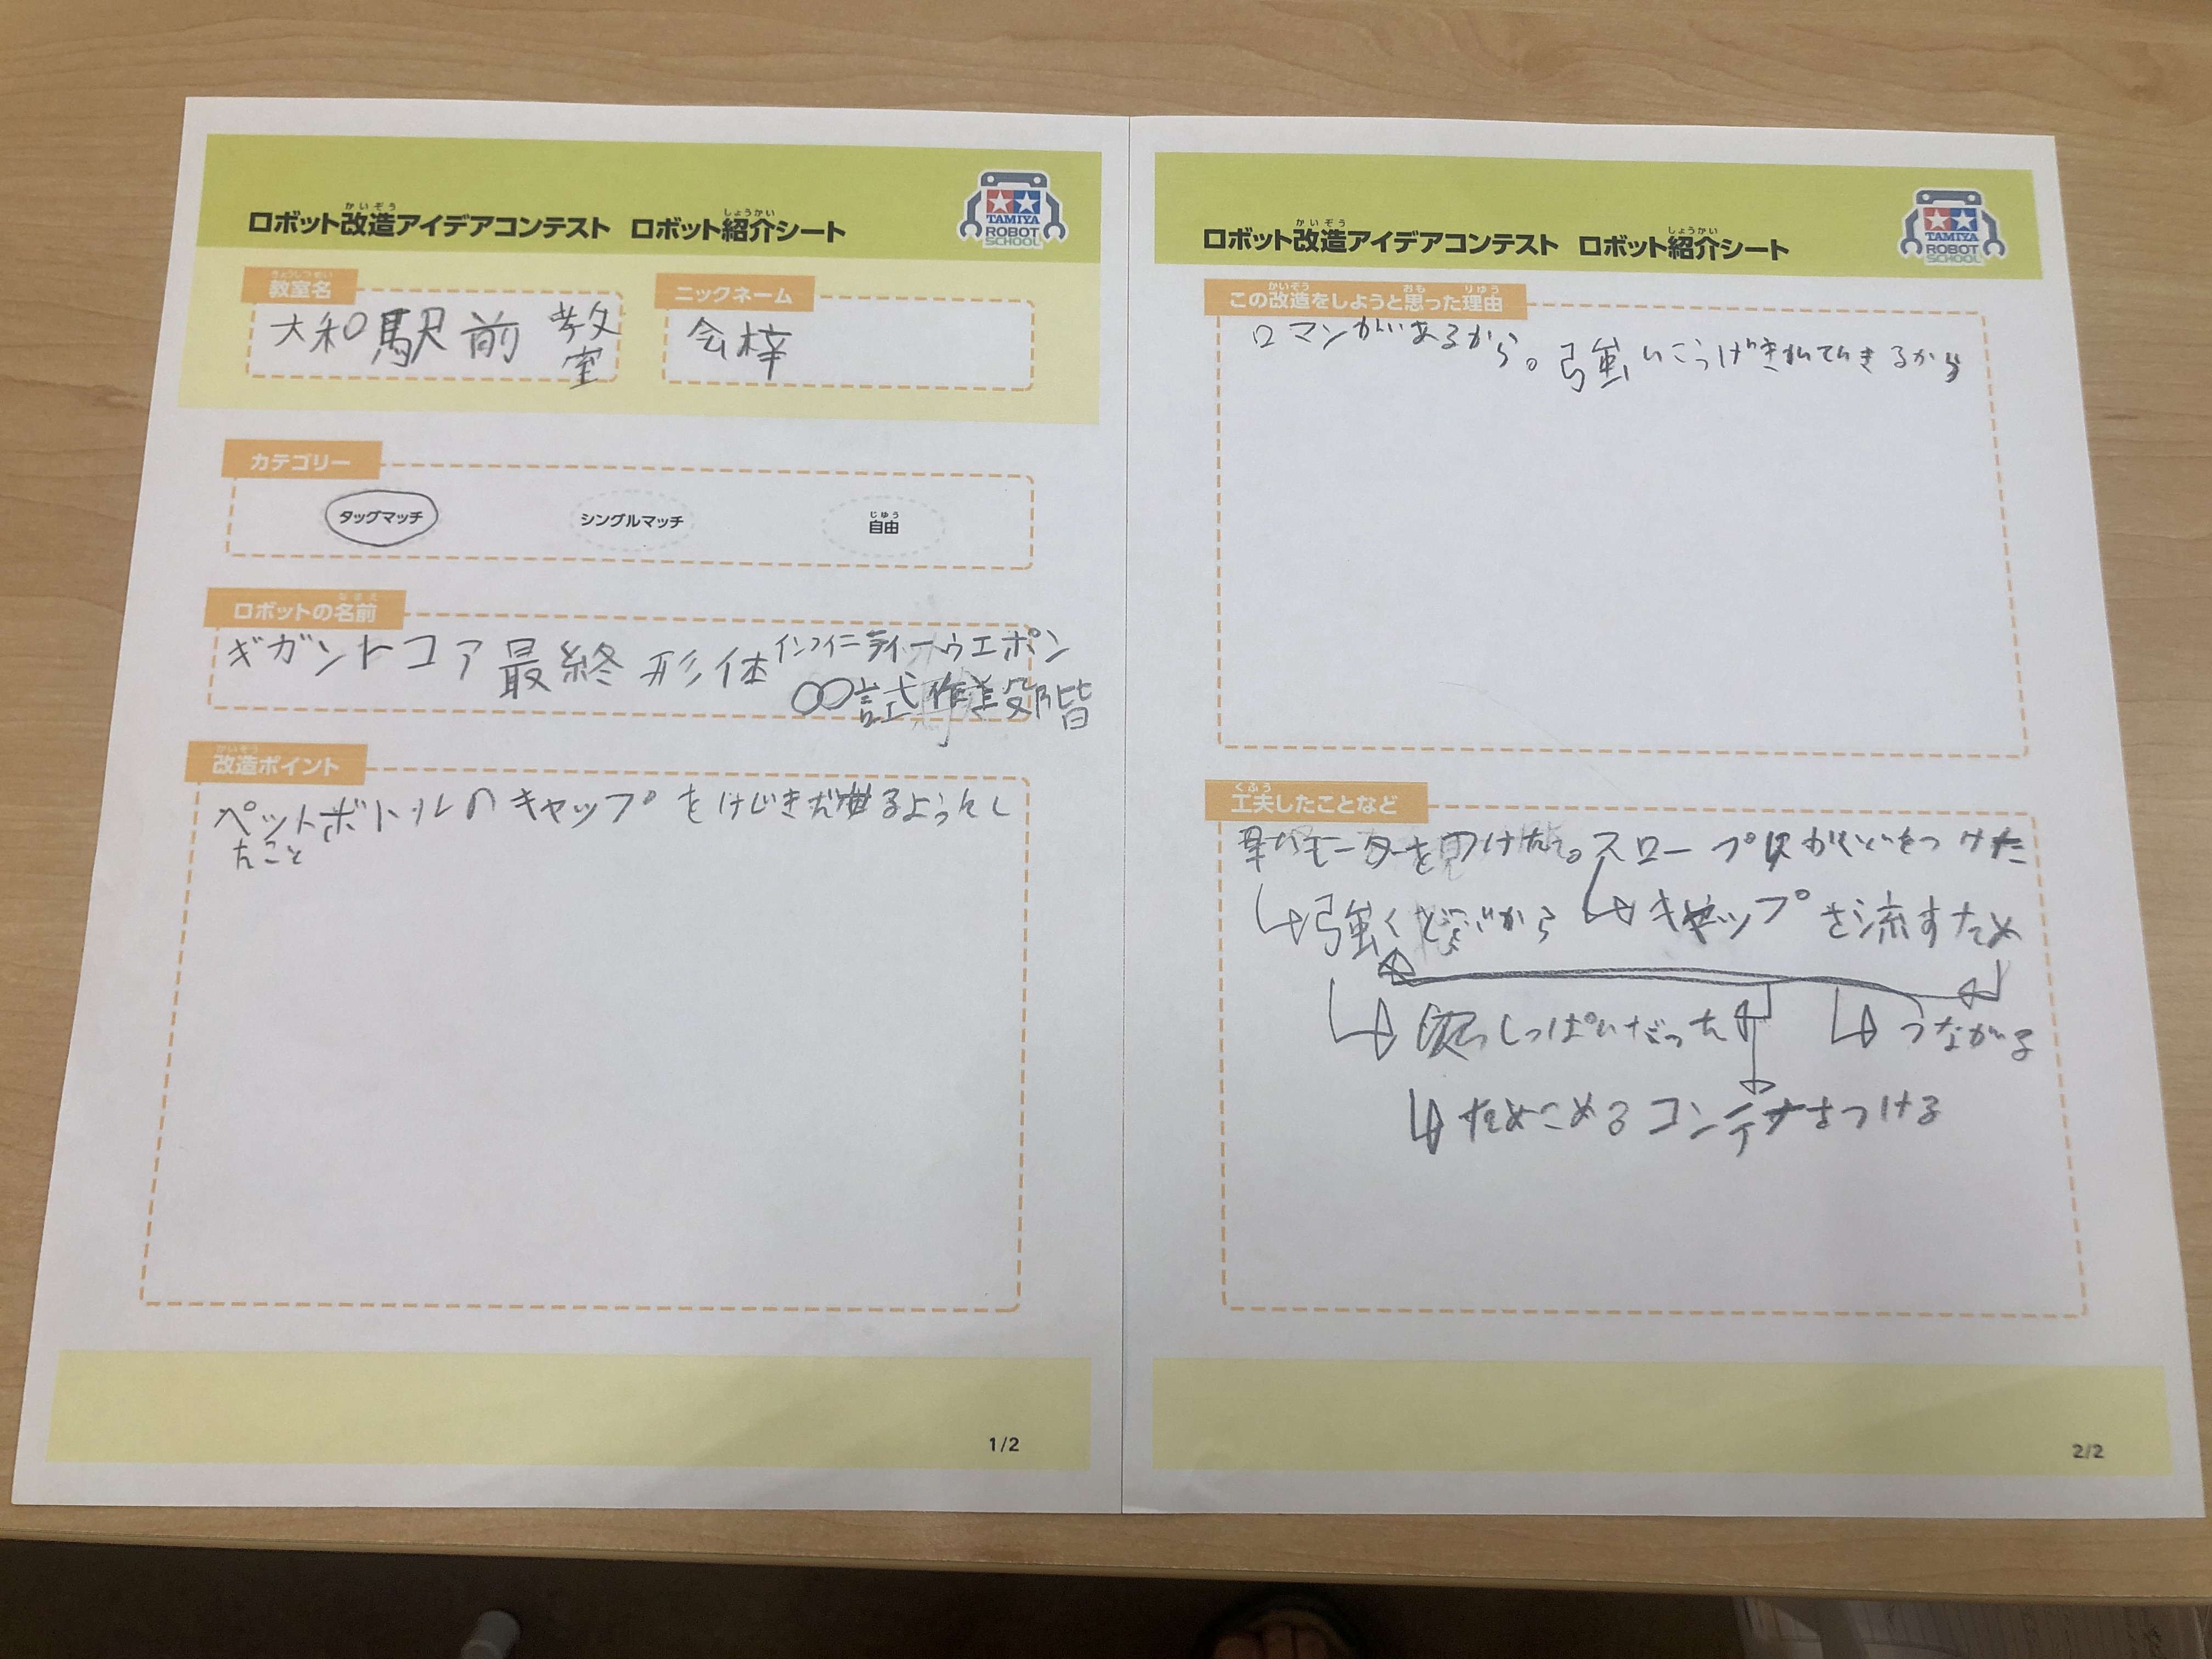 かいぞう しょうかい
ロボット改造アイデアコンテスト ロボット紹介シート
TAMIYA
ROBOT
SCHOOL
きょうしつめい
教室名
大和駅前教
室
ニックネーム
会梓
カテゴリー
タッグマッチ シングルマッチ じゆう 自由
なまえ
ロボットの名前
インフィニティーウエポン
ギガントコア最終形体
∞試作段階
かいぞう
改造ポイント
ペットボトルのキャップをはじきだせるようにし
たこと
1/2
かいぞう しょうかい
ロボット改造アイデアコンテスト ロボット紹介シート
TAMIYA
ROBOT
SCHOOL
かいぞう おも りゆう
この改造をしようと思った理由
ロマンがあるから。強いこうげきができるから
くふう
工夫したことなど
モーターをつけた。スロープ をつけた
↳強く から ↳キャップを流すため
↳ しっぱいだった ↳つながる
↳ためこめるコンテナをつける
2/2